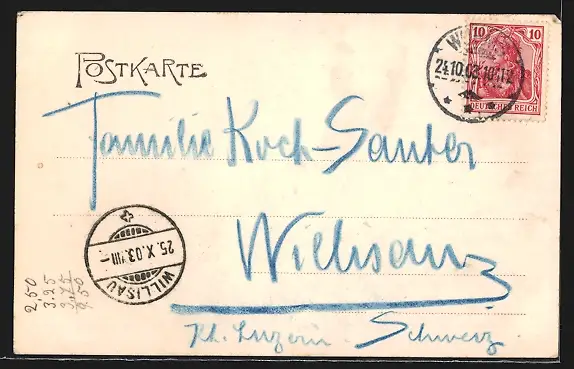 POSTKARTE
10 10
DEUTSCHES REICH
W
24.10.03.10-11V.
Familie Koch-Sauter
Willisau
Kt. Luzern. Schweiz
WILLISAU
25.X.03.VIII-
2 50
3.25
3.75
9.50